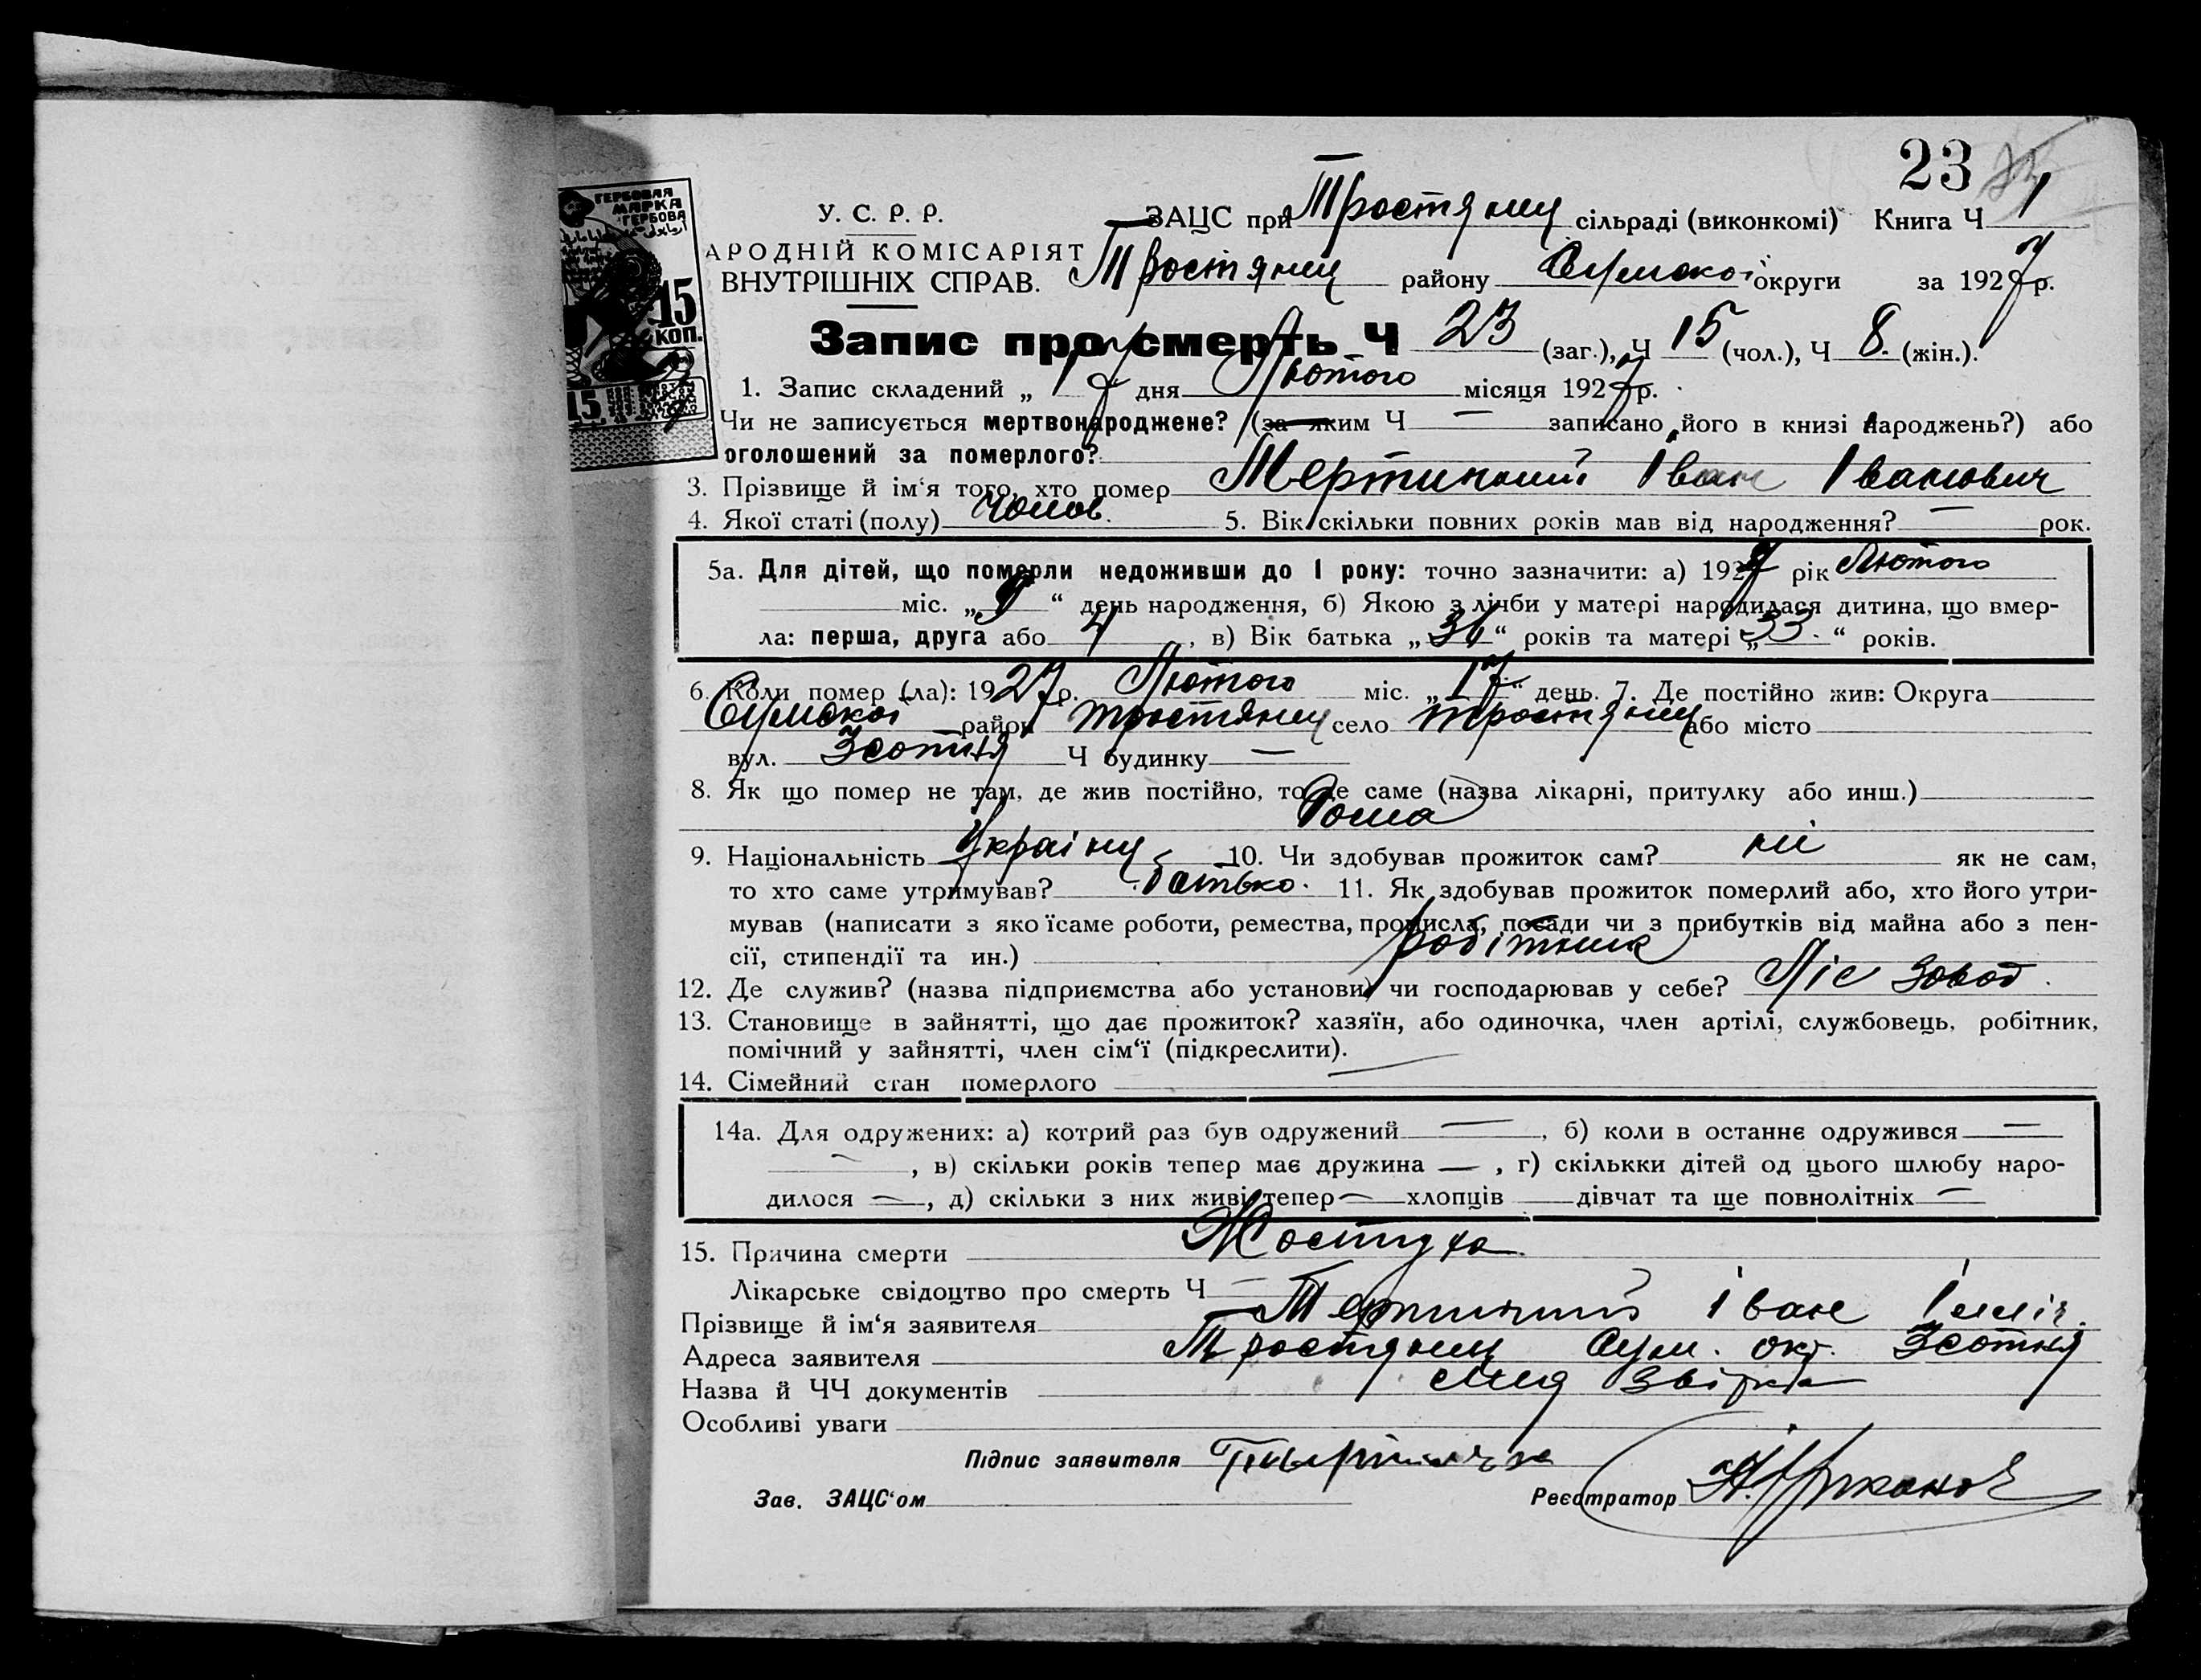 23
ГЕРБОВАЯ
МАРКА
ГЕРБОВА
15
КОП.
15
У. С. Р. Р.
АРОДНІЙ КОМІСАРІЯТ
ВНУТРІШНІХ СПРАВ.
ЗАЦС при Тростянец сільраді (виконкомі) Книга Ч 1
Тростянец району Сумської округи за 1927 р.
Запис про смерть Ч 23 (заг.), Ч 15 (чол.), Ч 8. (жін.).
1. Запис складений „ 17 дня Лютого місяця 1927 р.
Чи не записується мертвонароджене? (за яким Ч — записано його в книзі народжень?) або
оголошений за померлого?
3. Прізвище й ім‘я того, хто помер Іван Іванович
4. Якої статі (полу) чолов. 5. Вік скільки повних років мав від народження? — рок.
5а. Для дітей, що померли недоживши до 1 року: точно зазначити: а) 1927 рік Лютого
міс. „ 9 “ день народження, б) Якою з лічби у матері народилася дитина, що вмер-
ла: перша, друга або 4, в) Вік батька „ 36 “ років та матері „ 33. “ років.
6. Коли помер (ла): 1927 р. Лютого міс. „ 17 “ день. 7. Де постійно жив: Округа
Сумської район Тростянец село Тростянец або місто
вул. 3 сотня Ч будинку —
8. Як що помер не там, де жив постійно, то де саме (назва лікарні, притулку або инш.)
Дома
9. Національність Українец 10. Чи здобував прожиток сам? ні як не сам,
то хто саме утримував? батько. 11. Як здобував прожиток померлий або, хто його утри-
мував (написати з яко їсаме роботи, ремества, промисла, посади чи з прибутків від майна або з пен-
сії, стипендії та ин.) робітник
12. Де служив? (назва підприємства або установи) чи господарював у себе? Ліс завод.
13. Становище в зайнятті, що дає прожиток? хазяїн, або одиночка, член артілі, службовець, робітник,
помічний у зайнятті, член сім‘ї (підкреслити).
14. Сімейний стан померлого —
14а. Для одружених: а) котрий раз був одружений —, б) коли в останнє одружився —
—, в) скільки років тепер має дружина —, г) скількки дітей од цього шлюбу наро-
дилося —, д) скільки з них живі тепер — хлопців дівчат та ще повнолітніх —
15. Причина смерти
Лікарське свідоцтво про смерть Ч —
Прізвище й ім‘я заявителя Іван
Адреса заявителя Тростянец Сум. окр. 3 сотня
Назва й ЧЧ документів
Особливі уваги
Підпис заявителя
Зав. ЗАЦС‘ом Реєстратор